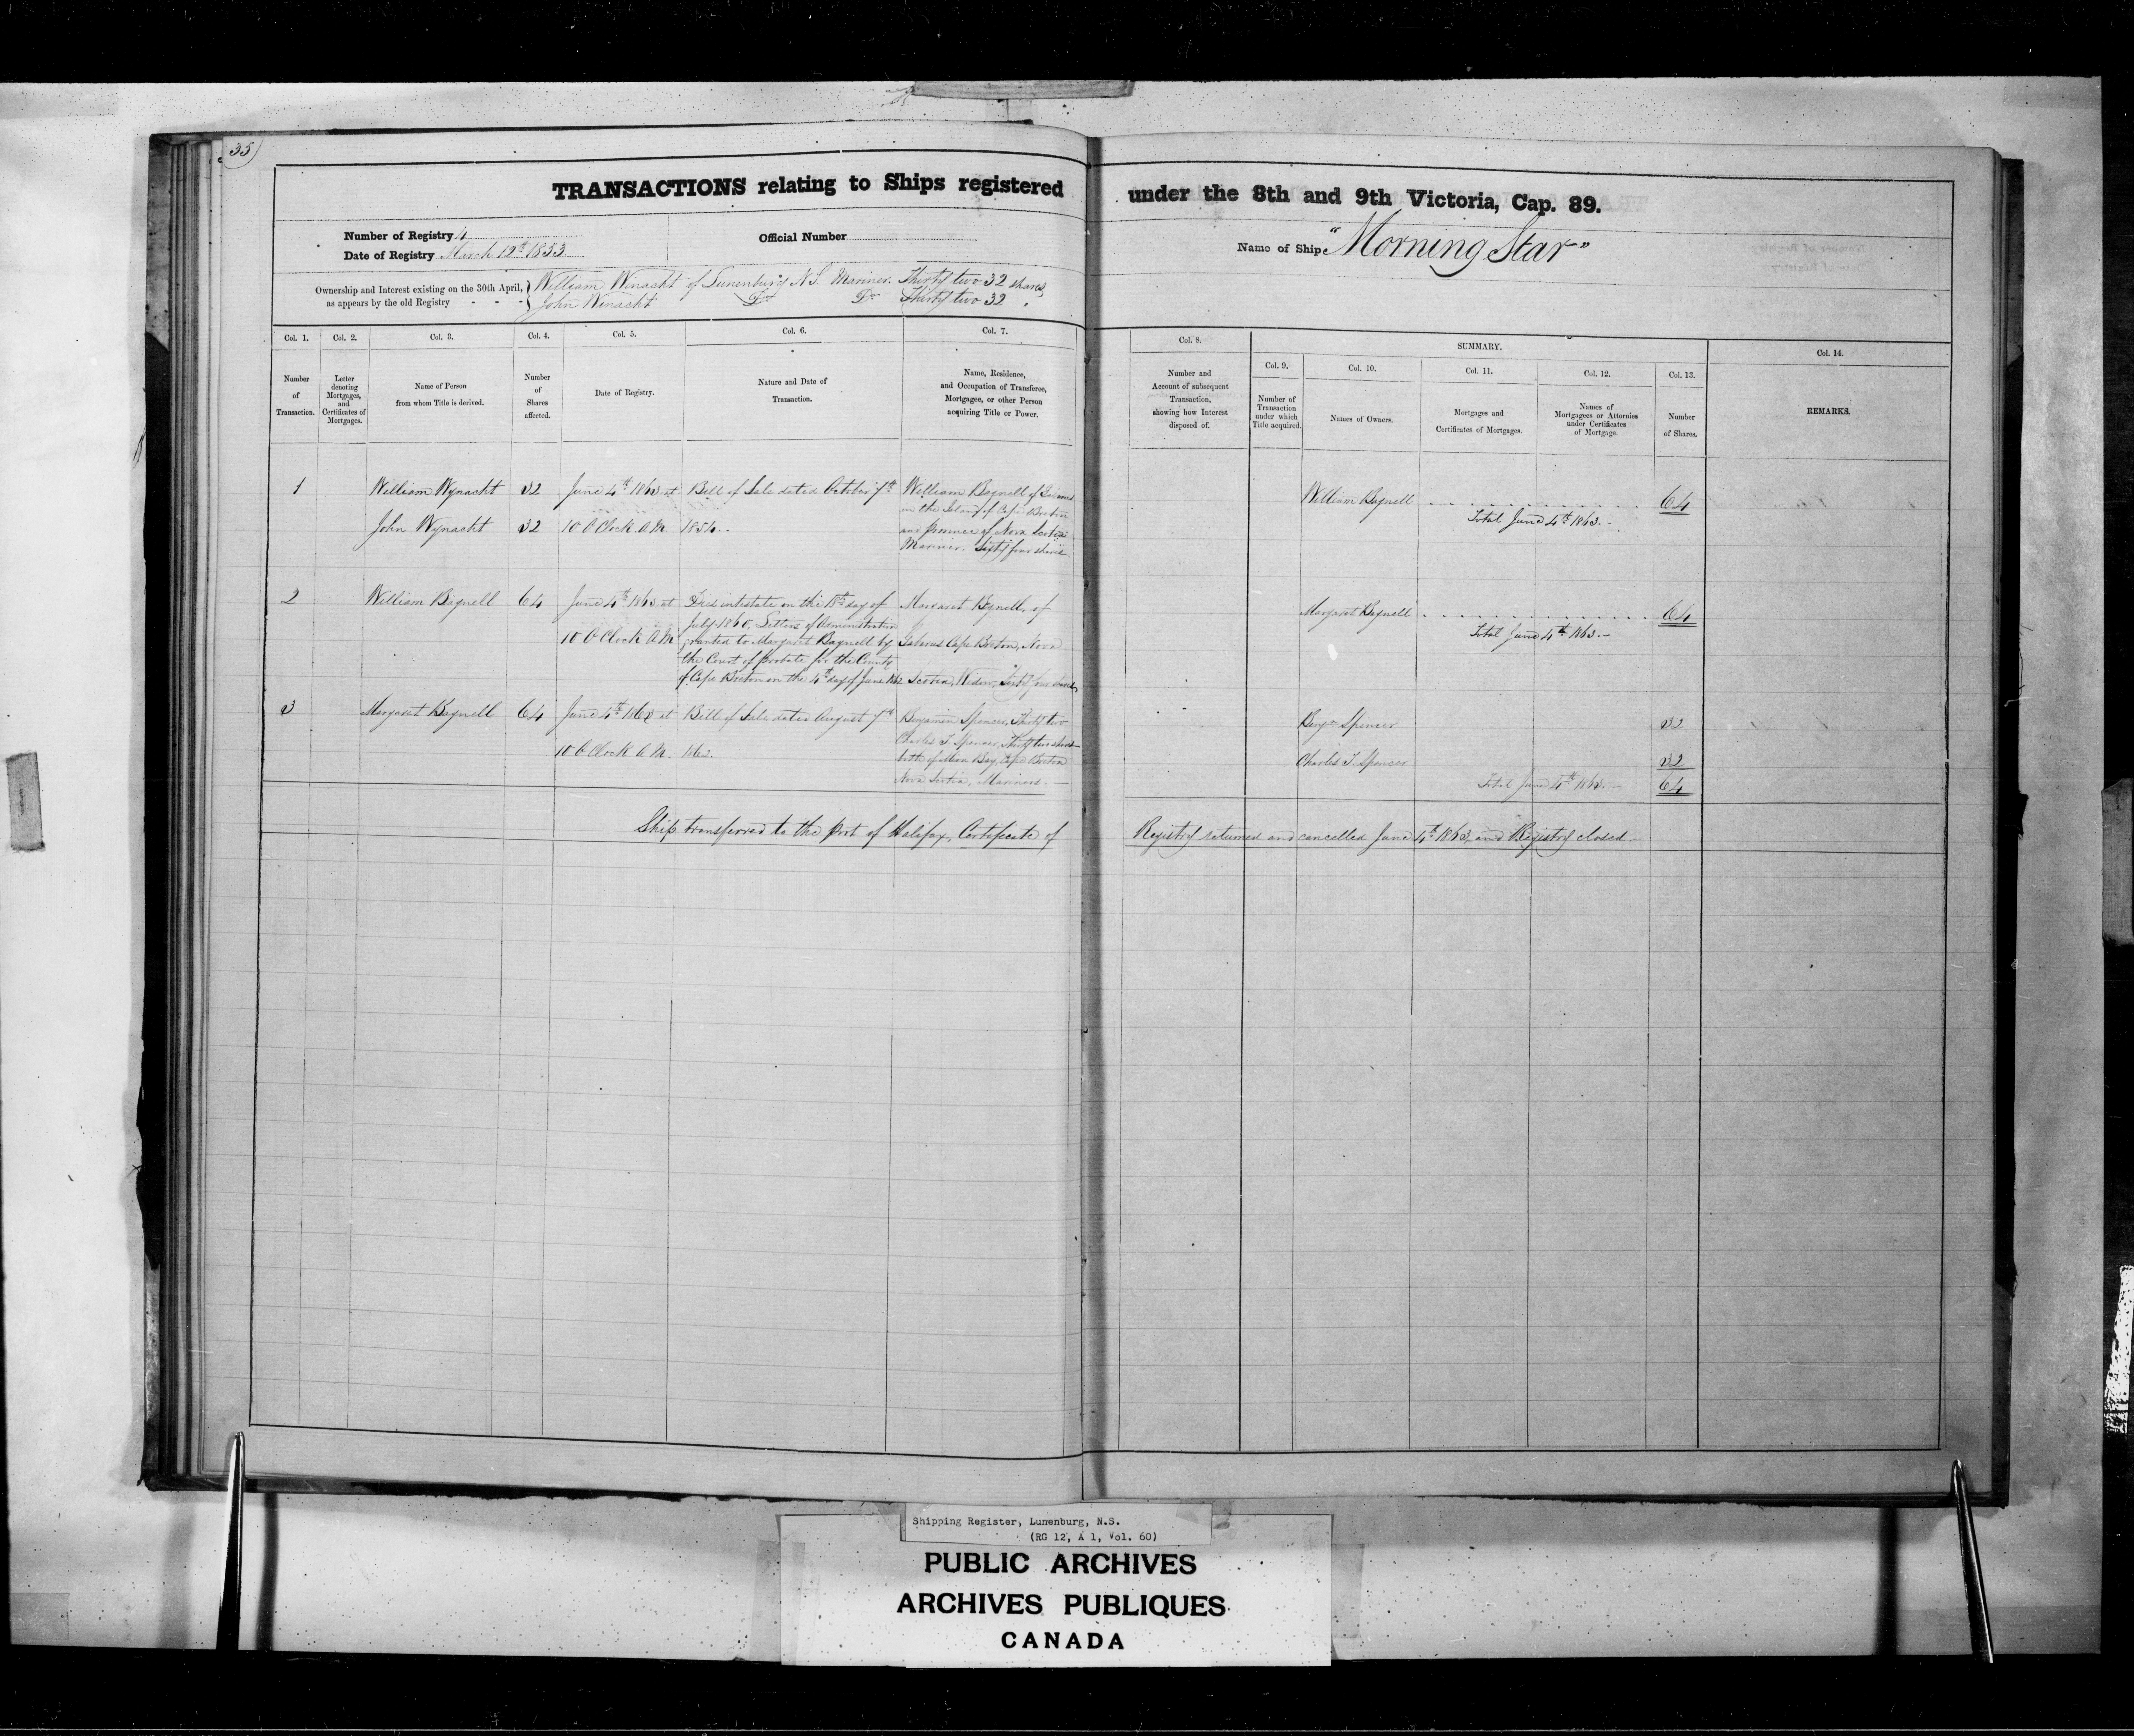 35
TRANSACTIONS relating to Ships registered under the 8th and 9th Victoria, Cap. 89.
Number of Registry 4
Official Number
Name of Ship "Morning Star"
Date of Registry March 12th 1853
Ownership and Interest existing on the 30th April, as appears by the old Registry - - -
William Winacht of Lunenburg N.S. Mariner. Thirty two 32 shares,
John Winacht Do Do Thirty two 32 "
Col. 1.
Number
of
Transaction.
Col. 2.
Letter
denoting
Mortgages,
and
Certificates of
Mortgages.
Col. 3.
Name of Person
from whom Title is derived.
Col. 4.
Number
of
Shares
affected.
Col. 5.
Date of Registry.
Col. 6.
Nature and Date of
Transaction.
Col. 7.
Name, Residence,
and Occupation of Transferee,
Mortgagee, or other Person
acquiring Title or Power.
Col. 8.
Number and
Account of subsequent
Transaction,
showing how Interest
disposed of.
SUMMARY.
Col. 9.
Number of
Transaction
under which
Title acquired.
Col. 10.
Names of Owners.
Col. 11.
Mortgages and
Certificates of Mortgages.
Col. 12.
Names of
Mortgagees or Attornies
under Certificates
of Mortgage.
Col. 13.
Number
of Shares.
Col. 14.
REMARKS.
1
William Wynacht 32
John Wynacht 32
June 4th 1863 at
10 O Clock A.M.
Bill of Sale dated October 7th
1854.
William Bagnell of
in the Island of Cape Breton
and province of Nova Scotia
Mariner. Sixty four shares
William Bagnell 64
Total June 4th 1863.
2
William Bagnell 64
June 4th 1863 at
10 O Clock A.M
Died intestate on the 18th day of
July 1860. Letters of Administration
granted to Margaret Bagnell by
the Court of probate for the County
of Cape Breton on the 4th day of June 1862
Margaret Bagnell, of
Gabarus Cape Breton, Nova
Scotia, Widow, Sixty four shares,
Margaret Bagnell 64
Total June 4th 1863.
3
Margaret Bagnell 64
June 4th 1863 at
10 O Clock A.M.
Bill of Sale dated August 7th
1862.
Benjamin Spencer, Thirty two
Charles T. Spencer, Thirty two shares
both of Mira Bay, Cape Breton
Nova Scotia, Mariners.
Benjn Spencer 32
Charles T. Spencer 32
Total June 4th 1863. 64
Ship transferred to the port of Halifax, Certificate of Registry returned and cancelled June 4th 1863, and Registry closed.
Shipping Register, Lunenburg, N.S.
(RG 12, A 1, Vol. 60)
PUBLIC ARCHIVES
ARCHIVES PUBLIQUES
CANADA